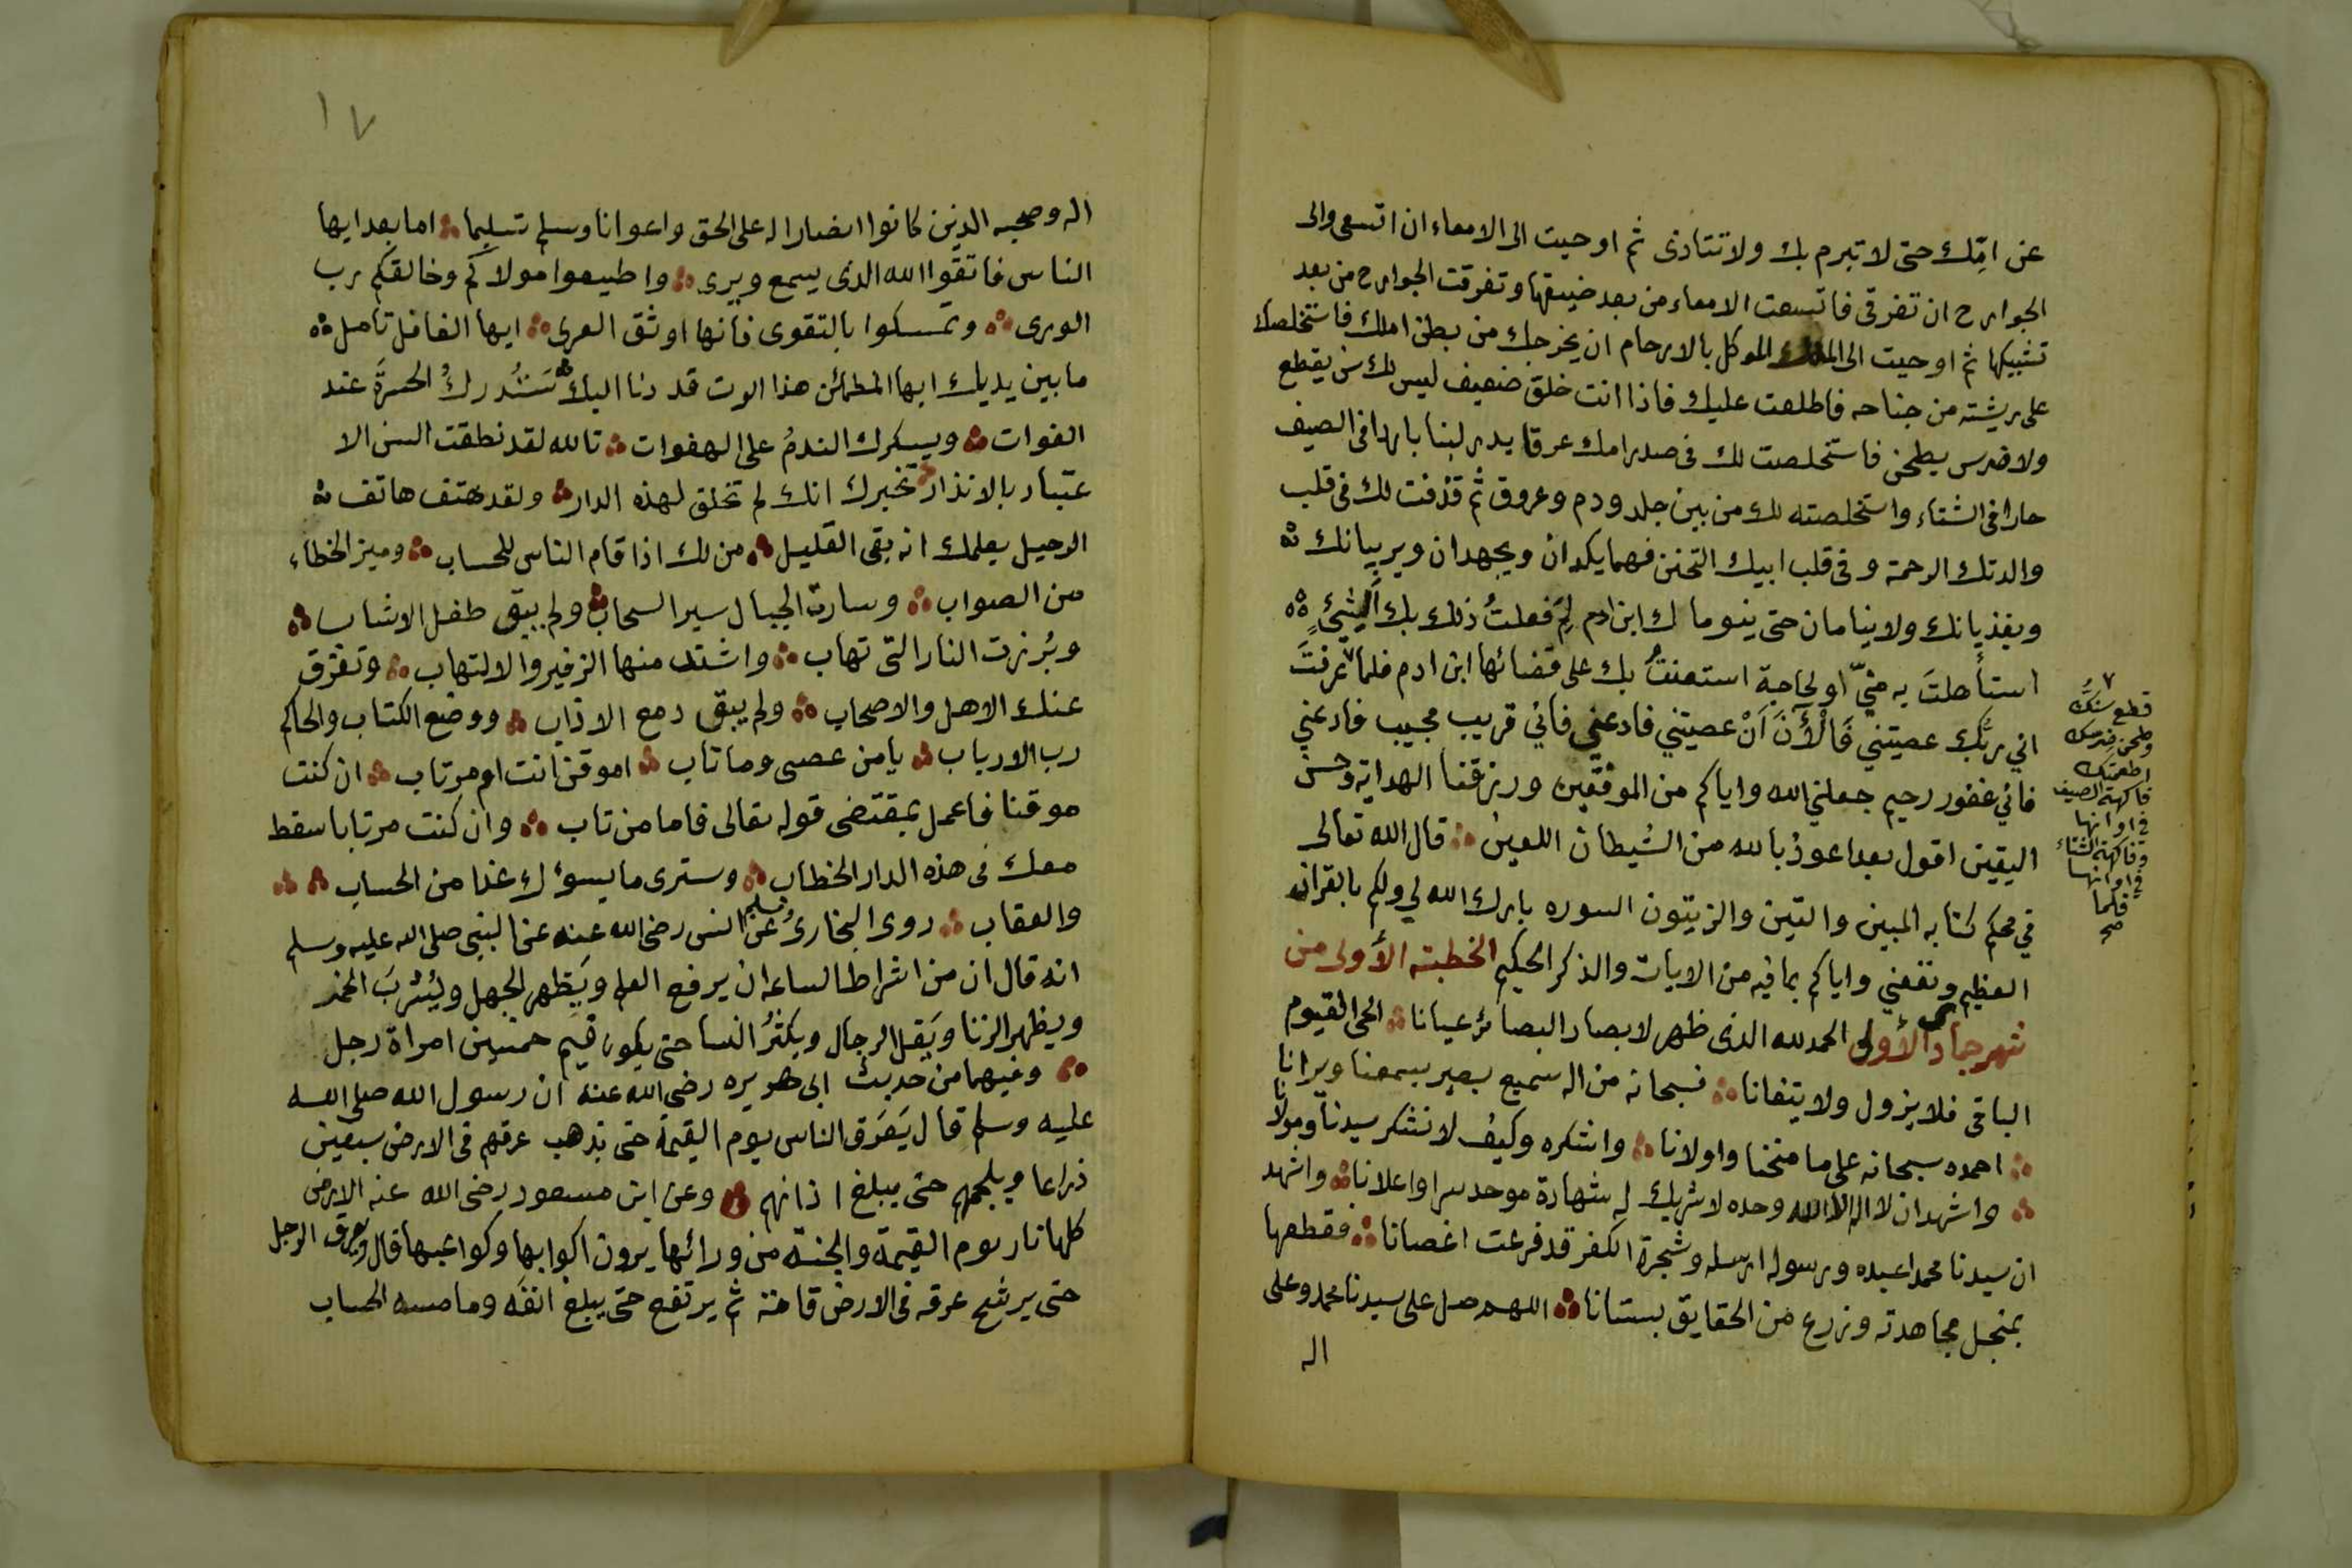 عن امّك حتى لا تبرم بك ولا تتاذى ثم اوحيت الى الامعاء ان اتسعى والى
الجوارح ان تفرقى فاتسعت الامعاء من بعد ضيقها وتفرقت الجوارح من بعد
تشبيكها ثم اوحيت الى الملك الموكل بالارحام ان يخرجك من بطن امك فاستخلصك
على ريشته من جناحه فاطلعت عليك فاذا انت خلق ضعيف ليس لك سن يقطع
ولا ضرس يطحن فاستخلصت لك فى صدر امك عرقا يدر لبنا باردا فى الصيف
حارا فى الشتاء واستخلصته لك من بين جلد ودم وعروق ثم قذفت لك فى قلب
والدتك الرحمة وفى قلب ابيك التحنن فهما يكدان ويجهدان ويربيانك
ويغذيانك ولا ينامان حتى ينوماك ابن ادم لِمَ فعلتُ ذلك بك ألشئٍ
استأهلتَ به منّي او لحاجة استعنتُ بك على قضائها ابن ادم فلما عرفتَ
اني ربُّك عصيتني فَالْأَنَ اَنْ عصيتني فادعني فاني قريب مجيب فادعني
فاني غفور رحيم جعلني الله واياكم من الموقنين ورزقنا الهداية وحسن
اليقين اقول بعد اعوذ بالله من الشيطان اللعين قال الله تعالى
في محكم كتابه المبين والتين والزيتون السوره بارك الله لي ولكم بالقران
العظيم ونفعني واياكم بما فيه من الايات والذكر الحكيم الخطبته الأولى من
شهر جماد الأولى الحمد لله الذى ظهر لابصار البصائر عيانا الحى القيوم
الباقى فلا يزول ولا يتفانا فسبحانه من اله سميع بصير يسمعنا ويرانا
احمده سبحانه على ما منحنا واولانا واشكره وكيف لا نشكر سيدنا ومولانا
واشهد ان لا اله الا الله وحده لا شريك له شهادة موحد سرا واعلانا واشهد
ان سيدنا محمدا عبده ورسوله ارسله وشجرة الكفر قد فرعت اغصانا فقطعها
بمنجل مجاهدته وزرع من الحقايق بستانا اللهم صل على سيدنا محمد وعلى
اله
٧
قطع سنّك
وطحن ضرسك
اطعمتك
فاكهة الصيف
في اوانها
وفاكهة الشتاء
في اوانها
فلما
صح
١٧
اله وصحبه الذين كانوا انصارا له على الحق واعوانا وسلم تسليما اما بعد ايها
الناس فاتقوا الله الذى يسمع ويرى واطيعوا مولاكم وخالقكم رب
الورى وتمسكوا بالتقوى فانها اوثق العرى ايها الغافل تامل
ما بين يديك ايها المطمائن هذا الوت قد دنا اليك سَتُدركُ الحسرةَ عند
الفوات ويسكرك الندمُ على الهفوات تالله لقد نطقت السن الا
عتبار بالانذار تخبرك انك لم تخلق لهذه الدار ولقد هتف هاتف
الرحيل يعلمك انه بقى القليل من لك اذا قام الناس للحساب وميز الخطاء
من الصواب وسارت الجبال سير السحاب ولم يبق طفل الا شاب
وبُرزت النار التى تهاب واشتد منها الزفير والالتهاب وتفرق
عنك الاهل والاصحاب ولم يبق دمع الا ذاب ووضع الكتاب والحاكم
رب الارباب يا من عصى وما تاب اموقن انت ام مرتاب ان كنت
موقنا فاعمل بمقتضى قوله تعالى فاما من تاب وان كنت مرتابا سقط
معك فى هذه الدار الخطاب وسترى ما يسوءك غدا من الحساب
والعقاب روى البخارى ومسلم عن انس رضى الله عنه عن النبى صلى الله عليه وسلم
انه قال ان من اشراط الساعه ان يرفع العلم ويَظهر الجهل ويُشرَبَ الخمر
ويظهر الزنا ويَقل الرجال ويكثرُ النسا حتى يكون قيم خمسين امراة رجل
وفيهما من حديث ابى هريره رضى الله عنه ان رسول الله صلى الله
عليه وسلم قال يَعْرَق الناس يوم القيمة حتى يذهب عرقهم فى الارض سبعين
ذراعا ويلجمهم حتى يبلغ اذانهم وعن ابن مسعود رضى الله عنه الارض
كلها نار يوم القيمة والجنة من ورائها يرون اكوابها وكواعبها قال ويعرق الرجل
حتى يرشح عرقه فى الارض قامة ثم يرتفع حتى يبلغ انفه وما مسه الحساب